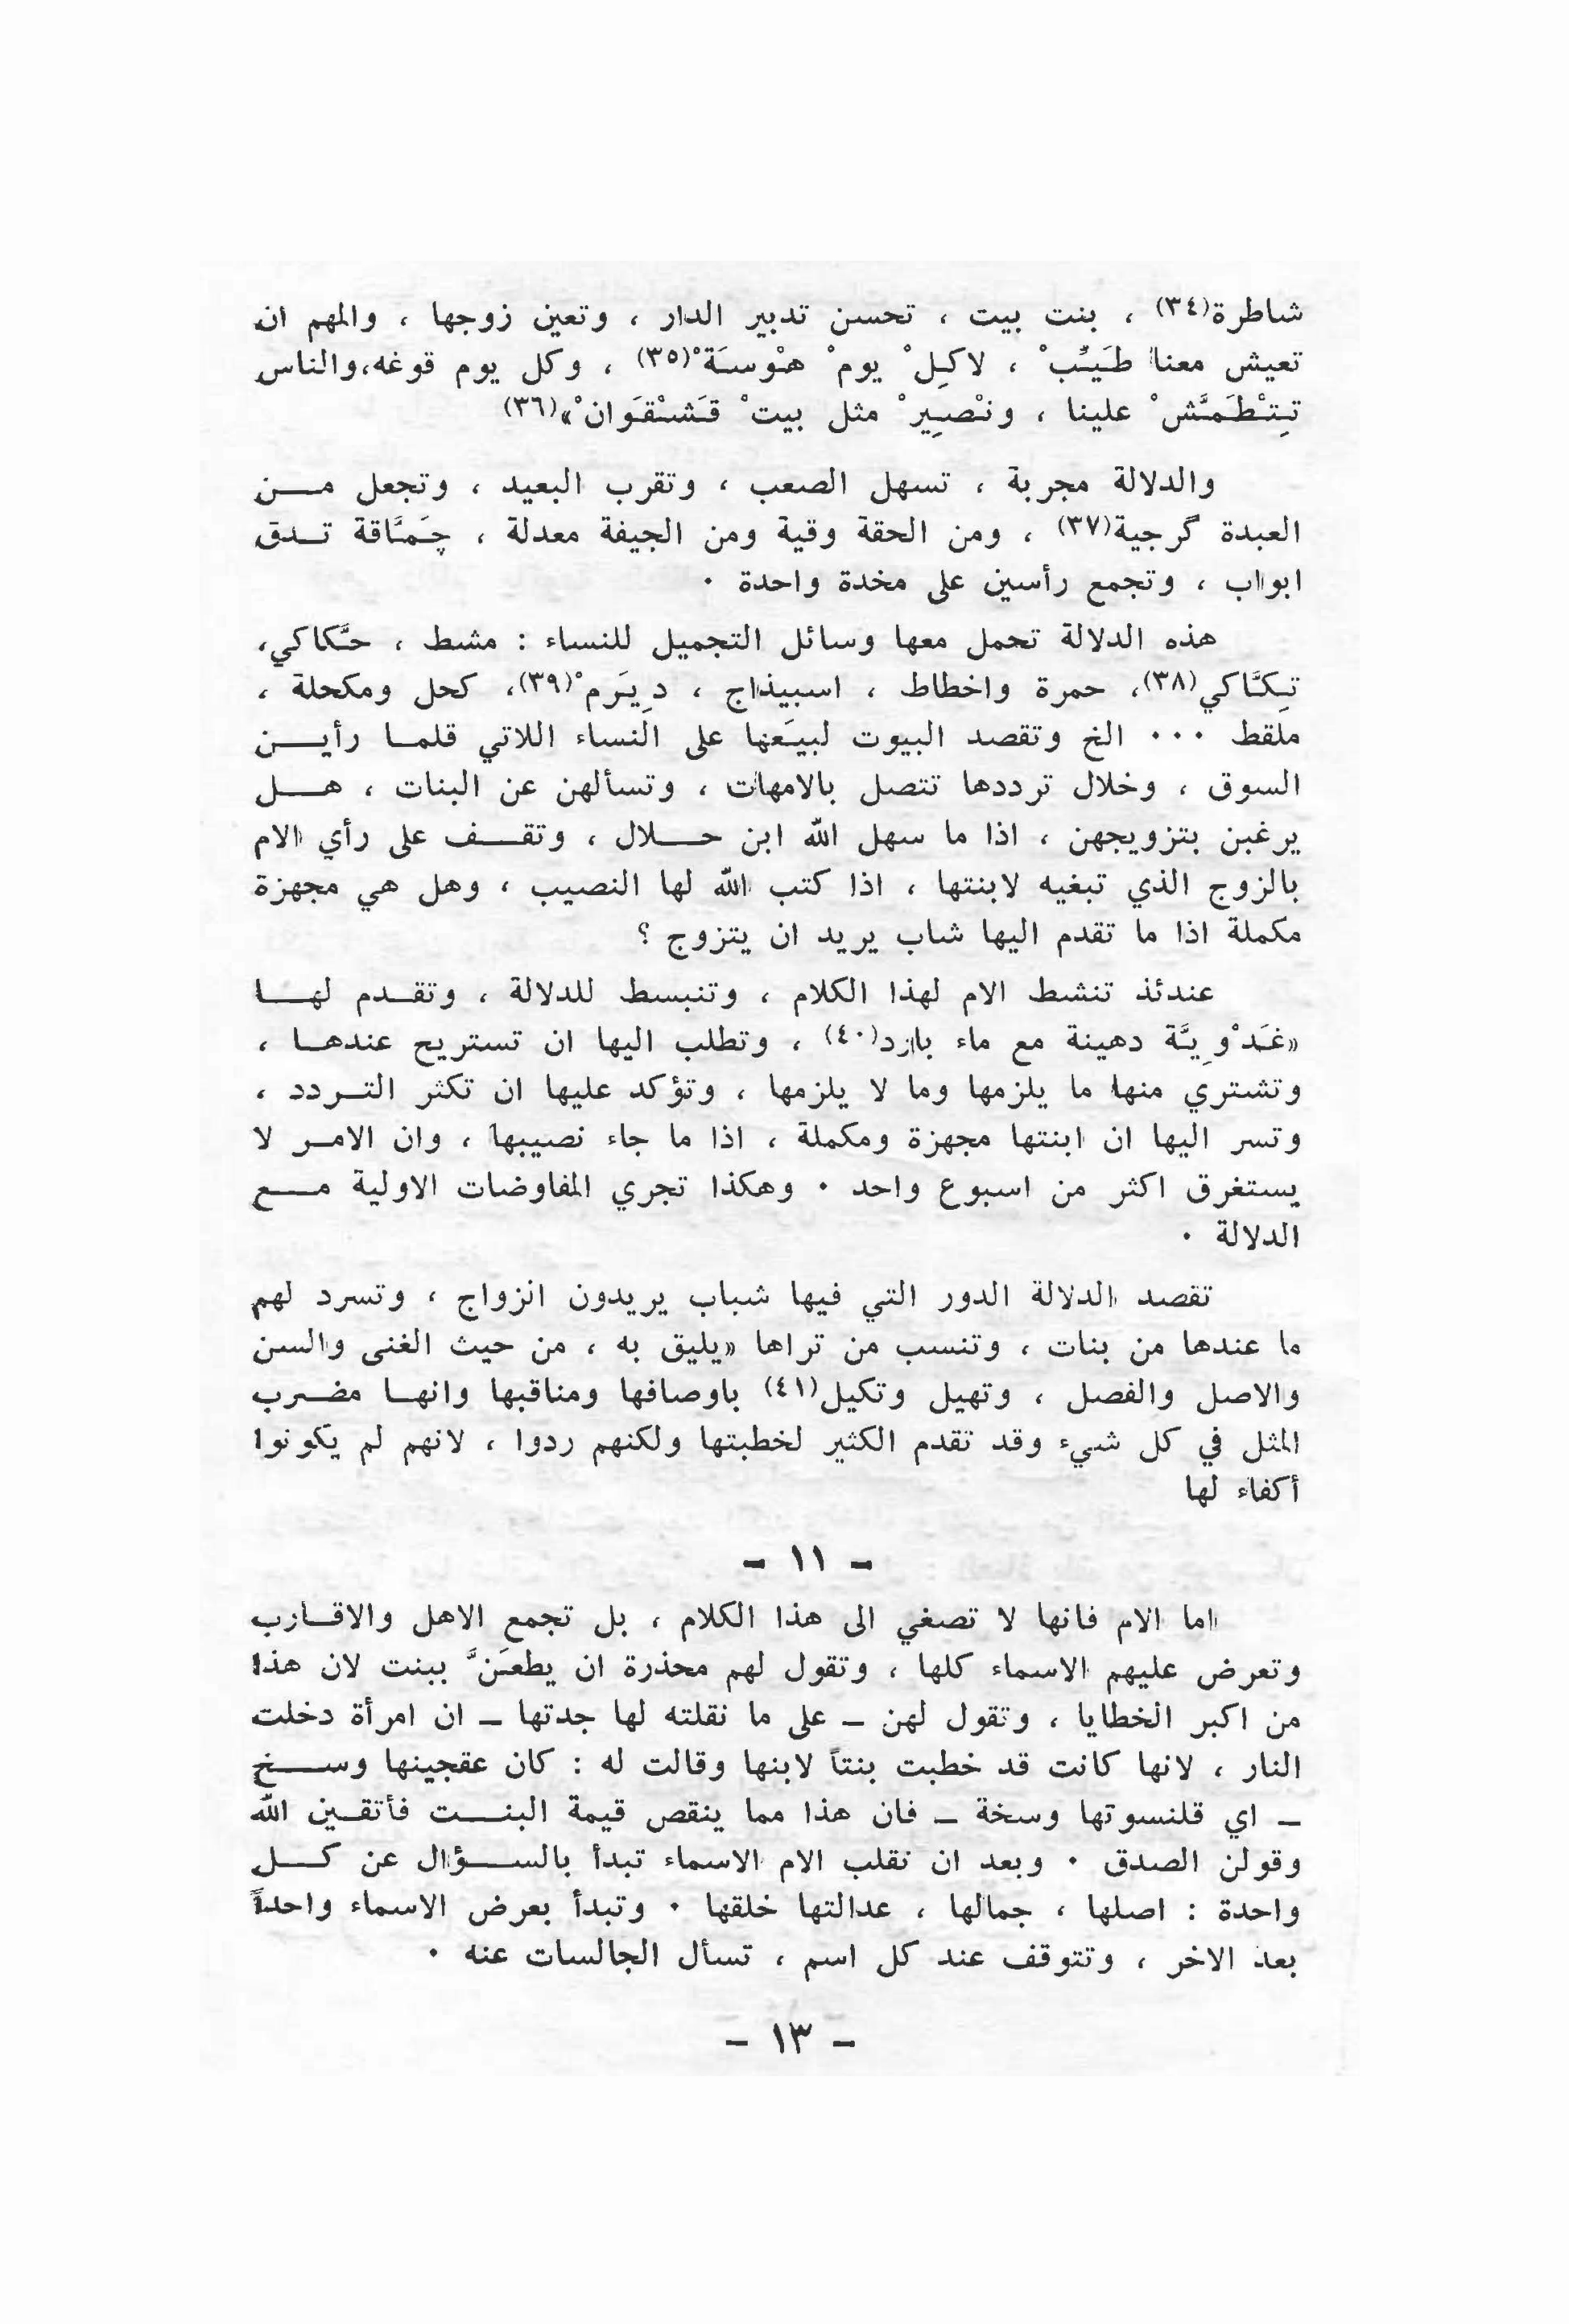 شاطرة(٣٤) ، بنت بيت ، تحسن تدبير الدار ، وتعين زوجها ، والمهم ان
تعيش معنا طَيِّبْ ، لاكِلْ يومْ هوْسَةْ(٣٥) ، وكل يوم قوغه،والناس
تِتْطَمَّشْ علينا ، ونْصِيرْ مثل بيتْ قَشْقَوانْ»(٣٦)
والدلالة مجربة ، تسهل الصعب ، وتقرب البعيد ، وتجعل مــن
العبدة گرجية(٣٧) ، ومن الحقة وقية ومن الجيفة معدلة ، چَمَّاقة تــدق
ابواب ، وتجمع رأسين على مخدة واحدة ٠
هذه الدلالة تحمل معها وسائل التجميل للنساء : مشط ، حَّكاكي،
تِكَّاكي(٣٨)، حمرة واخطاط ، اسبيذاج ، دِيَرمْ(٣٩)، كحل ومكحلة ،
ملقط ٠٠٠ الخ وتقصد البيوت لبيَعها على النساء اللاتي قلمــا رأيــن
السوق ، وخلال ترددها تتصل بالامهات ، وتسألهن عن البنات ، هــل
يرغبن بتزويجهن ، اذا ما سهل الله ابن حــلال ، وتقــف على رأي الام
بالزوج الذي تبغيه لابنتها ، اذا كتب الله لها النصيب ، وهل هي مجهزة
مكملة اذا ما تقدم اليها شاب يريد ان يتزوج ؟
عندئذ تنشط الام لهذا الكلام ، وتنبسط للدلالة ، وتقــدم لهــا
«غَدْوِيَّة دهينة مع ماء بارد(٤٠) ، وتطلب اليها ان تستريح عندهــا ،
وتشتري منها ما يلزمها وما لا يلزمها ، وتؤكد عليها ان تكثر التــردد ،
وتسر اليها ان ابنتها مجهزة ومكملة ، اذا ما جاء نصيبها ، وان الامــر لا
يستغرق اكثر من اسبوع واحد ٠ وهكذا تجري المفاوضات الاولية مــع
الدلالة ٠
تقصد الدلالة الدور التي فيها شباب يريدون انزواج ، وتسرد لهم
ما عندها من بنات ، وتنسب من تراها «يليق به ، من حيث الغنى والسن
والاصل والفصل ، وتهيل وتكيل(٤١) باوصافها ومناقبها وانهــا مضــرب
المثل في كل شيء وقد تقدم الكثير لخطبتها ولكنهم ردوا ، لانهم لم يكونوا
أكفاء لها
– ١١ –
اما الام فانها لا تصغي الى هذا الكلام ، بل تجمع الاهل والاقــارب
وتعرض عليهم الاسماء كلها ، وتقول لهم محذرة ان يطعنَّ ببنت لان هذا
من اكبر الخطايا ، وتقول لهن – على ما نقلته لها جدتها – ان امرأة دخلت
النار ، لانها كانت قد خطبت بنتاً لابنها وقالت له : كان عقجينها وســخ
– اي قلنسوتها وسخة – فان هذا مما ينقص قيمة البنــت فأتقــين الله
وقولن الصدق ٠ وبعد ان تقلب الام الاسماء تبدأ بالســؤال عن كــل
واحدة : اصلها ، جمالها ، عدالتها خلقها ٠ وتبدأ بعرض الاسماء واحداً
بعد الاخر ، وتتوقف عند كل اسم ، تسأل الجالسات عنه ٠
– ١٣ –